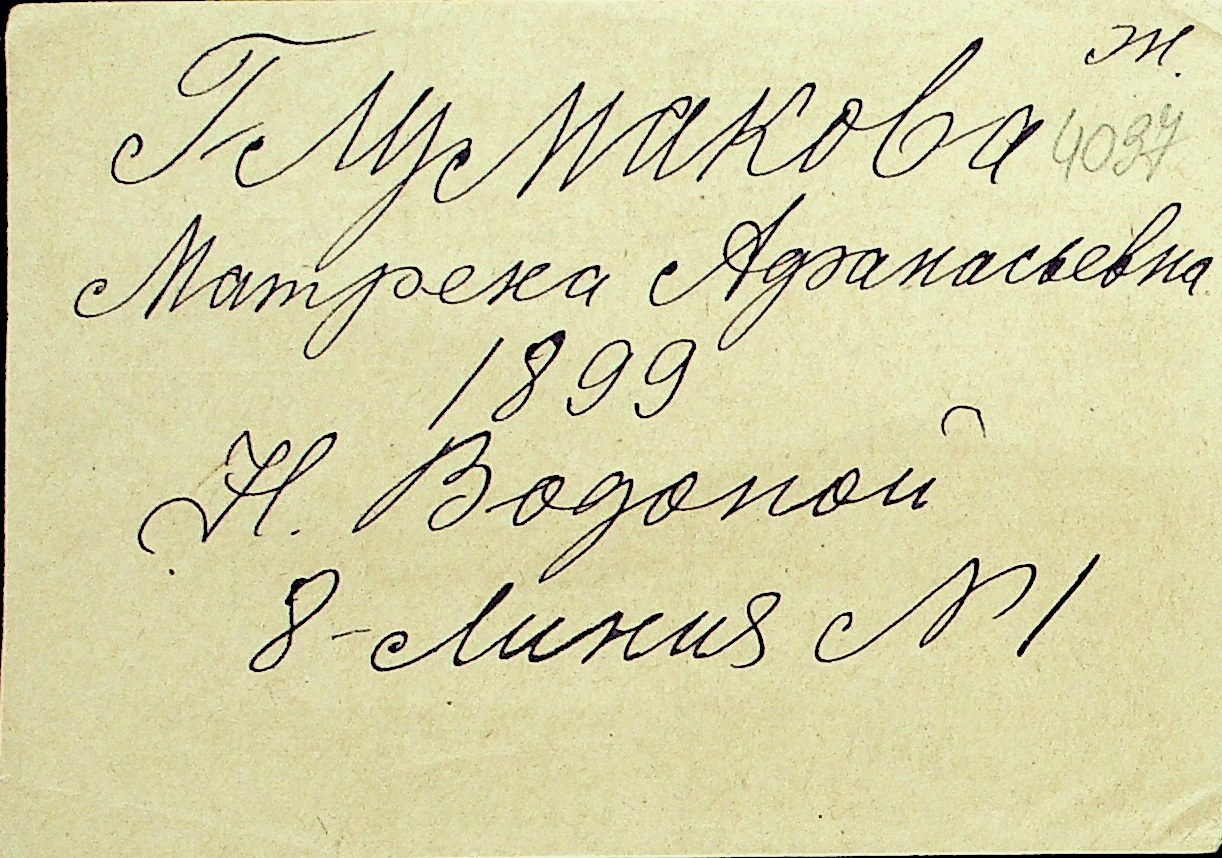 ж.
Глумакова 4037
Матрена Афанасьевна
1899
Н. Водопой
8-Линия N 1